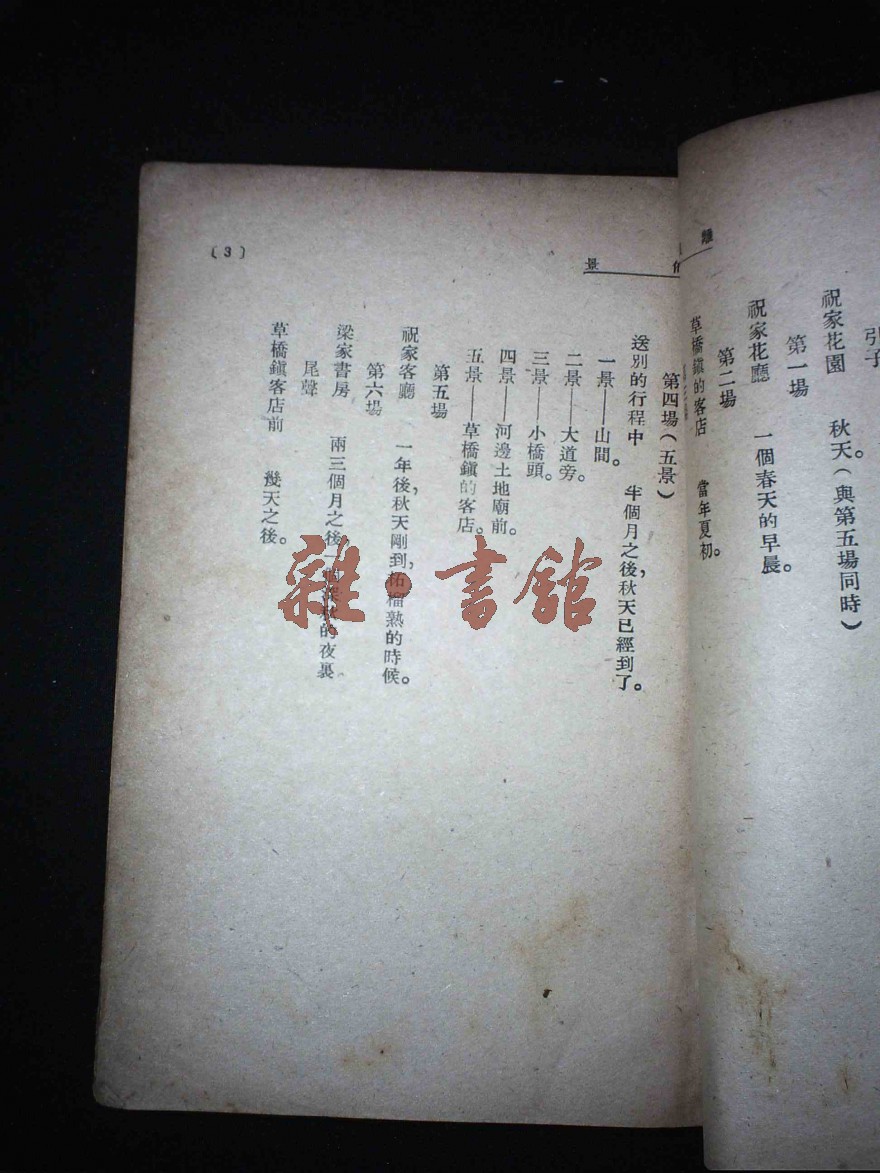 引子
祝家花園 秋天。(與第五場同時)
第一場
祝家花廳 一個春天的早晨。
第二場
草橋鎮的客店 當年夏初。
景
第四場(五景)
送別的行程中 半個月之後,秋天已經到了。
一景——山間。
二景——大道旁。
三景——小橋頭。
四景——河邊土地廟前。
五景——草橋鎮的客店。
第五場
祝家客廳 一年後,秋天剛到,柘榴熟的時候。
第六場
梁家書房 兩三個月之後 的夜裏
尾聲
草橋鎮客店前 幾天之後。
(3)
雜·書館